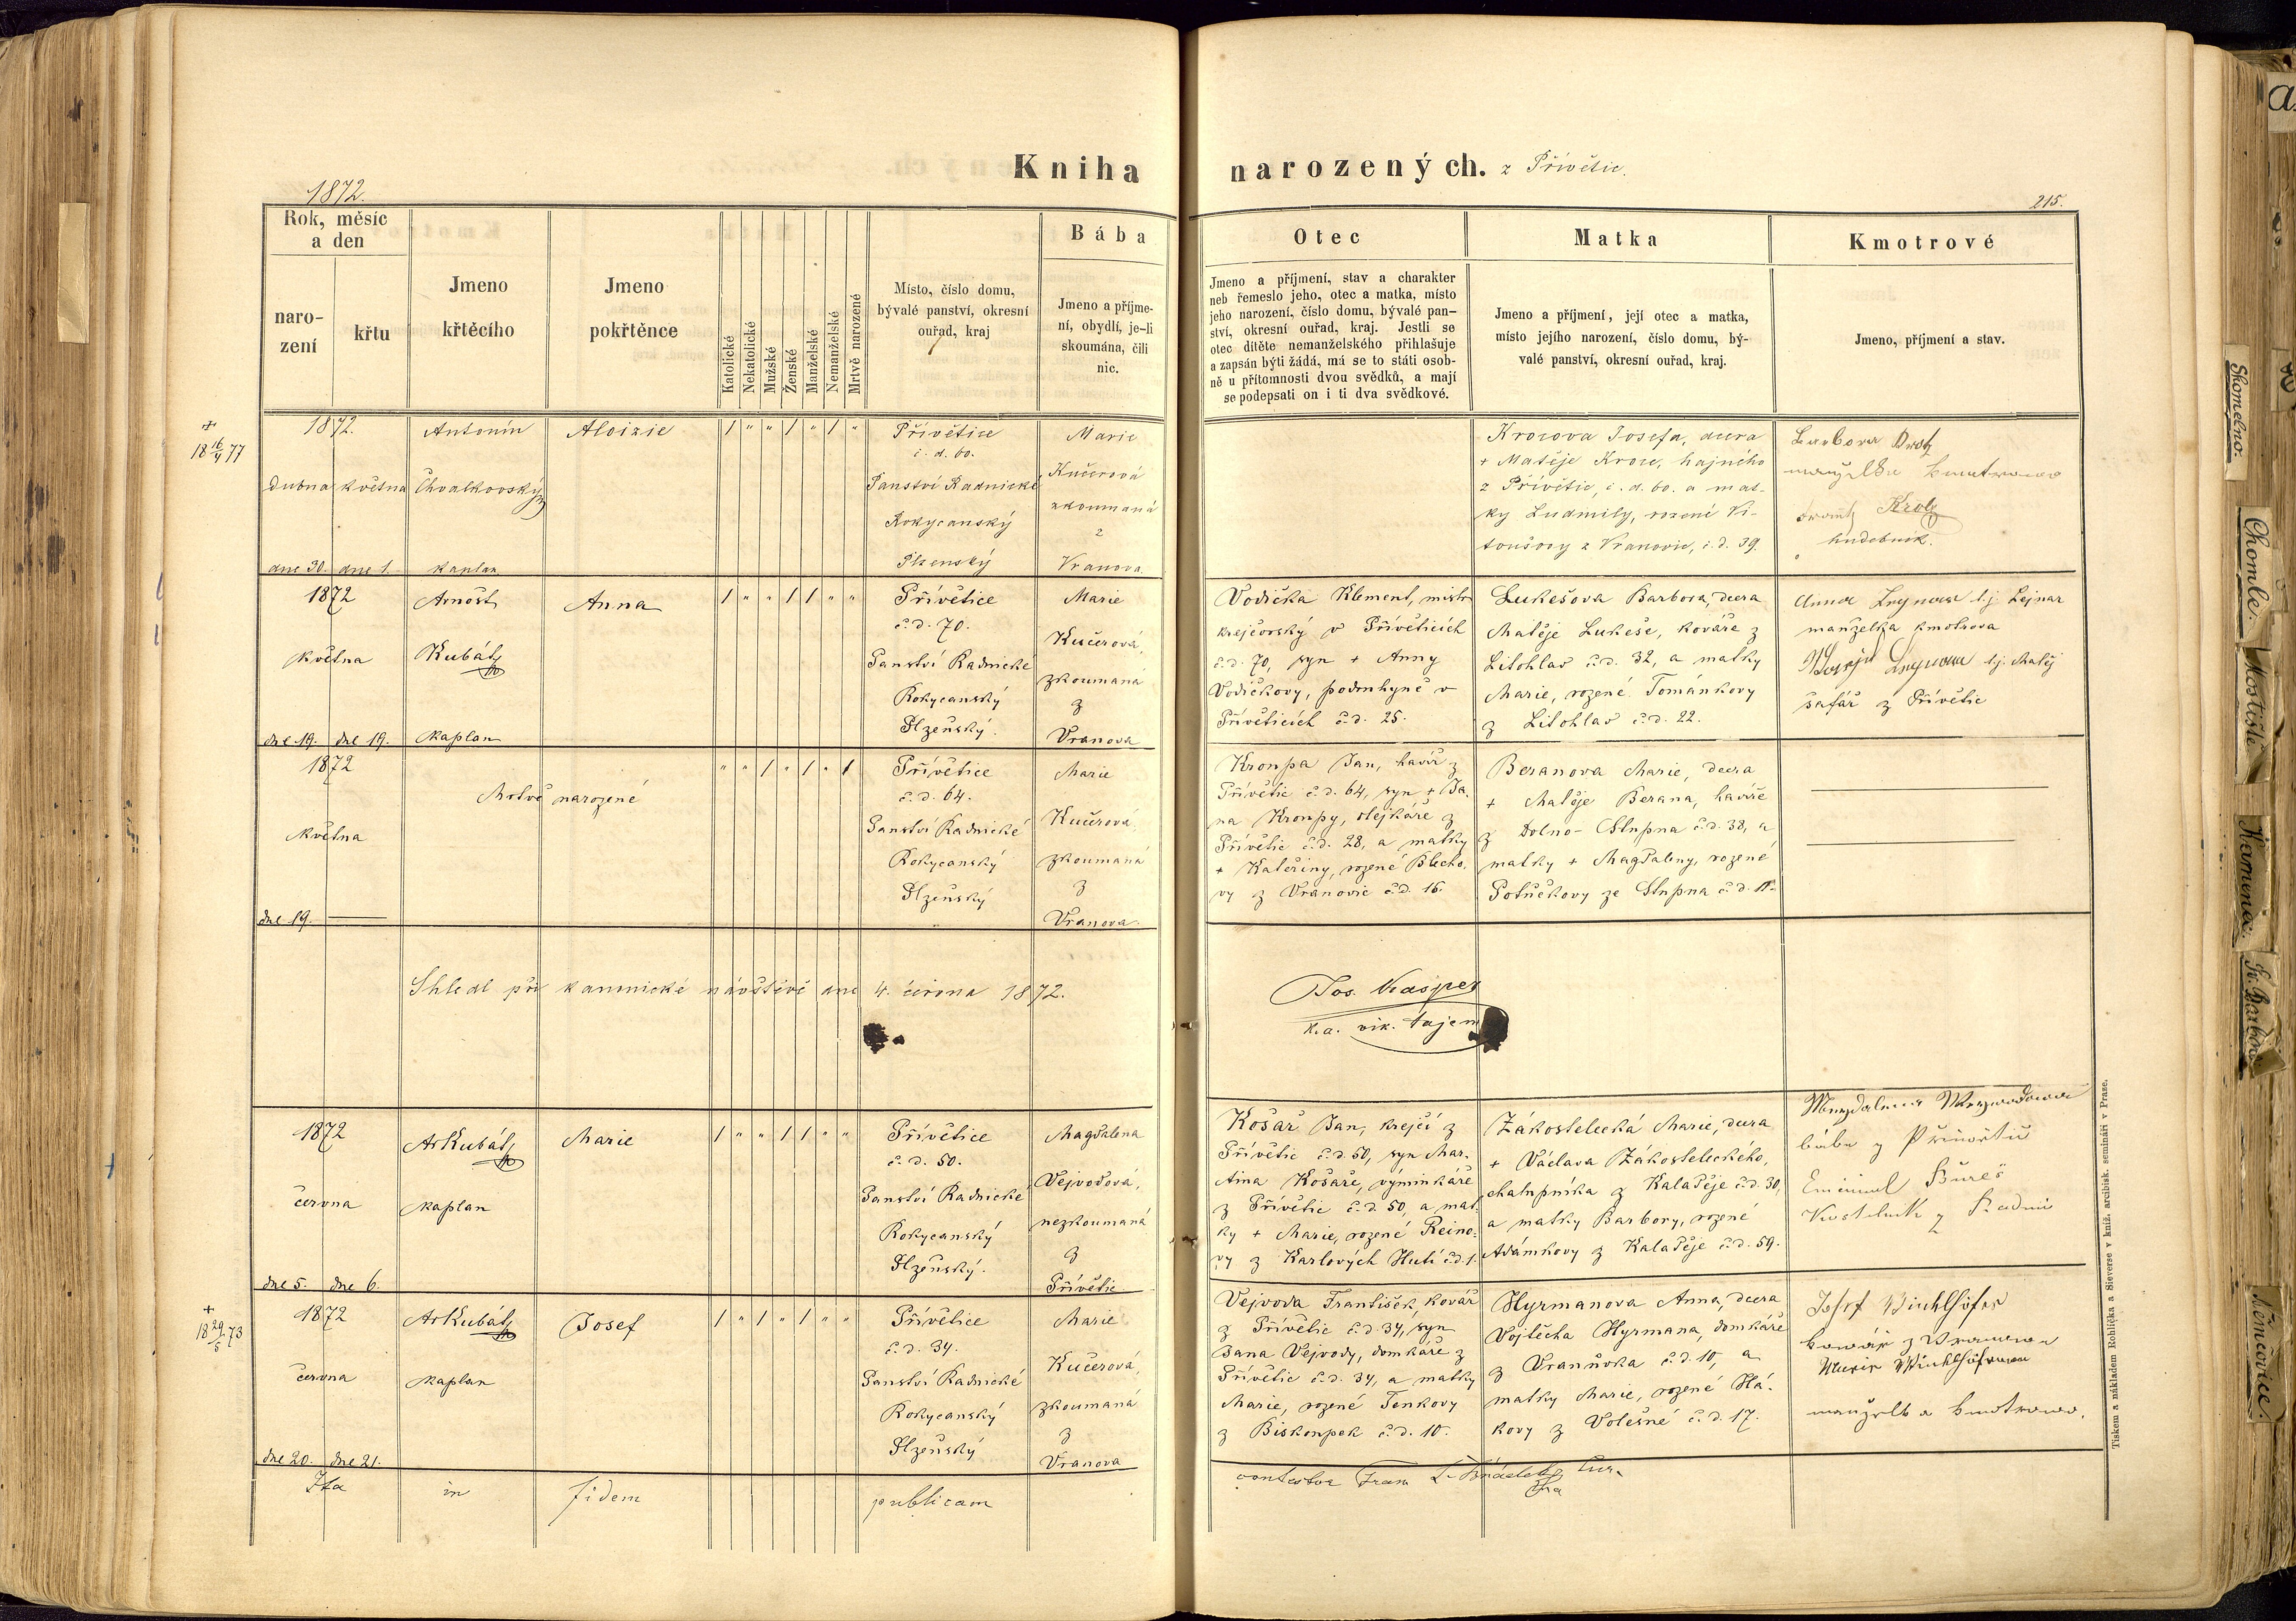 Kniha narozených. z Přívětic.
1872.
215.
Rok, měsíc
a den
naro-
zení
křtu
Jmeno
křtěcího
Jmeno
pokřtěnce
Katolické
Nekatolické
Mužské
Ženské
Manželské
Nemanželské
Mrtvě narozené
Místo, číslo domu,
bývalé panství, okresní
ouřad, kraj
Bába
Jmeno a příjme-
ní, obydlí, je-li
skoumána, čili
nic.
Otec
Jmeno a příjmení, stav a charakter
neb řemeslo jeho, otec a matka, místo
jeho narození, číslo domu, bývalé pan-
ství, okresní ouřad, kraj. Jestli se
otec dítěte nemanželského přihlašuje
a zapsán býti žádá, má se to státi osob-
ně u přítomnosti dvou svědků, a mají
se podepsati on i ti dva svědkové.
Matka
Jmeno a příjmení, její otec a matka,
místo jejího narození, číslo domu, bý-
valé panství, okresní ouřad, kraj.
Kmotrové
Jmeno, příjmení a stav.
+
18 16/4 77
1872.
Dubna května
dne 30. dne 1.
Antonín
Chvalkovský
kaplan
Aloizie
Přívětice
č. d. 60.
Panství Radnické
Rokycanský
Plzenský
Marie
Kučerová
zkoumaná
z
Vranova
Krocova Josefa, dcera
+ Matěje Kroce, hajného
z Přívětic, č. d. 60. a mat-
ky Ludmily, rozené Vi-
toušovy z Vranovic, č. d. 39.
Barbora
manželka kmotrova
hudebník.
1872
května
dne 19. dne 19.
Arnošt
Kubát
kaplan
Anna
Přívětice
č. d. 70.
Panství Radnické
Rokycanský
Plzeňský.
Marie
Kučerová,
zkoumaná
z
Vranova
Vodička Klement, mistr
krejčovský v Přívěticích
č. d. 70, syn + Anny
Vodičkovy, podruhyně v
Přívěticích č. d. 25.
Lukešova Barbora, dcera
Matěje Lukeše, kováře z
Litohlav č. d. 32, a matky
Marie, rozené Tománkovy
z Litohlav č. d. 22.
Anna t.j. Lejnar
manželka kmotrova
t.j. Matěj
šafář z Přívětic
1872
května
dne 19.
Mrtvě narozené
Přívětice
č. d. 64.
Panství Radnické
Rokycanský
Plzeňský
Marie
Kučerová,
zkoumaná
z
Vranova.
Kronpa Jan, havíř z
Přívětic č. d. 64, syn + Ja-
na Kronpy, olejkáře z
Přívětic č. d. 28, a matky
+ Kateřiny, rozené Blecho-
vy z Vranovic č. d. 16.
Beranova Marie, dcera
+ Matěje Berana, havíře
z Dolno-Stupna č. d. 38, a
matky + Magdaleny, rozené
Potůčkovy ze Stupna č. d. 11.
Shledl při kanonické návštěvě dne 4. června 1872.
Jos. Kasper
k. a. vik. tajem
1872
června
dne 5. dne 6.
Ar Kubát
kaplan
Marie
Přívětice
č. d. 50.
Panství Radnické
Rokycanský
Plzeňský.
Magdalena
Vejvodová,
nezkoumaná
z
Přívětic
Košař Jan, krejčí z
Přívětic č. d. 50, syn Mar-
tina Košaře, výminkáře
z Přívětic č. d. 50, a mat-
ky + Marie, rozené Reino-
vy z Karlových Hutí č. d. 1.
Zákostelecká Marie, dcera
+ Václava Zákosteleckého,
chalupníka z Kaladěje č. d. 30,
a matky Barbory, rozené
Adámkovy z Kaladěje č. d. 59.
bába z Přívětic
Bureš
Kostelník z Radnic
+
18 29/5 73
1872
června
dne 20. dne 21.
Ar Kubát
kaplan
Josef
Přívětice
č. d. 34.
Panství Radnické
Rokycanský
Plzeňský
Marie
Kučerová,
zkoumaná
z
Vranova
Vejvoda František, kovář
z Přívětic č. d. 34, syn
Jana Vejvody, domkáře z
Přívětic č. d. 34, a matky
Marie, rozené Tenkovy
z Biskoupek č. d. 10.
Hyrmanova Anna, dcera
Vojtěcha Hyrmana, domkáře
z Vranůvka č. d. 10, a
matky Marie, rozené Há-
kovy z Volešné č. d. 17.
Josef
kovář z Vranova
Marie
manželka kmotrova.
Ita in fidem publicam
Tiskem a nákladem Rohlíčka a Sieverse v kníž. arcibisk. semináři v Praze.
Skomelno.
Chomle.
Mostiště
Kamenec.
Sv. Barbora
Němčovice.